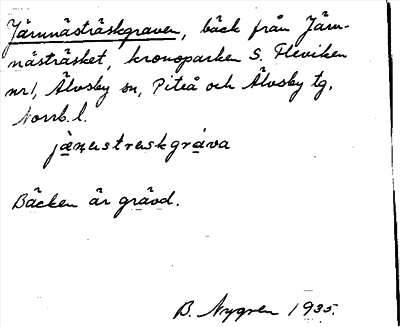 Järnnästräskgraven, bäck från Järn-
nästräsket, kronoparken S. Fleviken
nr1, Älvsby sn, Piteå och Älvsby tg,
Norrb. l.
jänastraskgräva
Bäcken är grävd.
B. Nygren 1935.